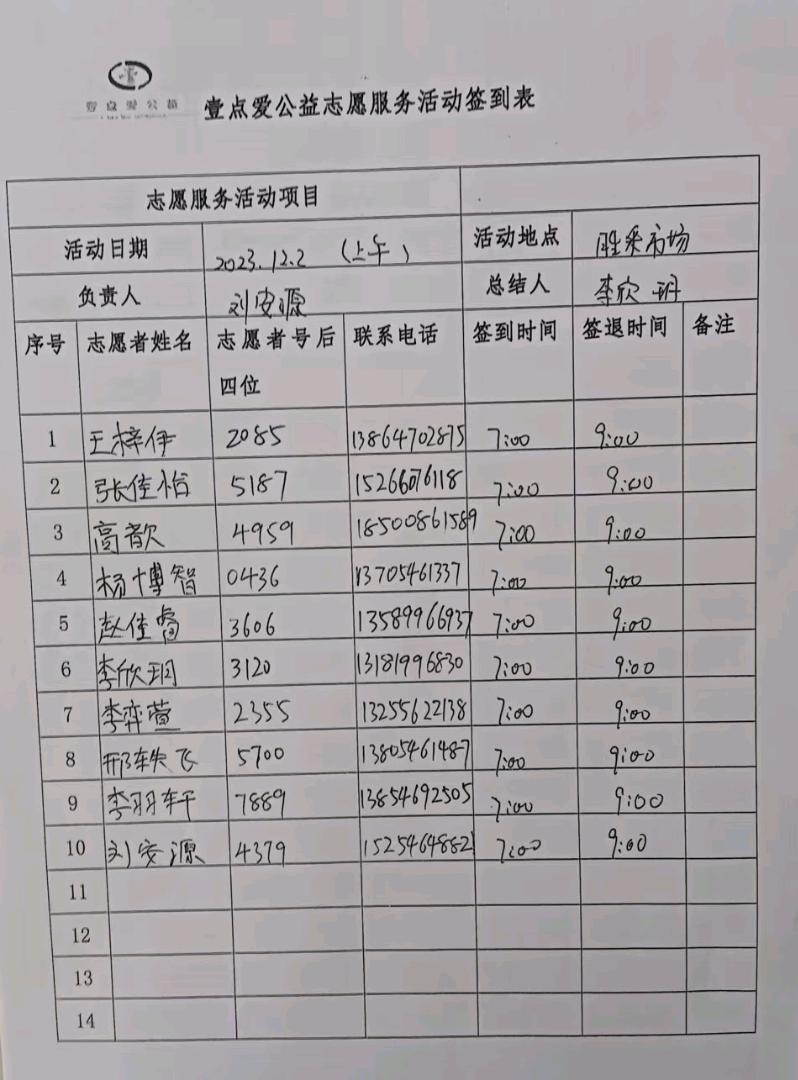 壹点爱公益
壹点爱公益志愿服务活动签到表
志愿服务活动项目
活动日期 2023.12.2 (上午) 活动地点 胜采市场
负责人 刘安源 总结人 李欣玥
序号 志愿者姓名 志愿者号后四位 联系电话 签到时间 签退时间 备注
1 王梓伊 2085 13864702875 7:00 9:00
2 张佳怡 5187 15266076118 7:00 9:00
3 高歆 4959 18500861589 7:00 9:00
4 杨博智 0436 13705461337 7:00 9:00
5 赵佳睿 3606 13589966937 7:00 9:00
6 李欣玥 3120 13181996830 7:00 9:00
7 李弈萱 2355 13255622138 7:00 9:00
8 邢轶飞 5700 13805461487 7:00 9:00
9 李羽轩 7889 13854692505 7:00 9:00
10 刘安源 4379 15254648821 7:00 9:00
11
12
13
14